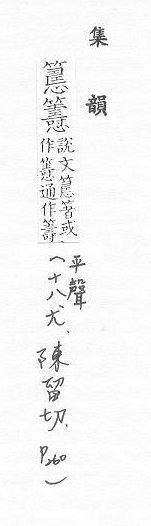 集韻
說文 箸或
作 通作籌
平聲
(十八尤、陳留切、P260)